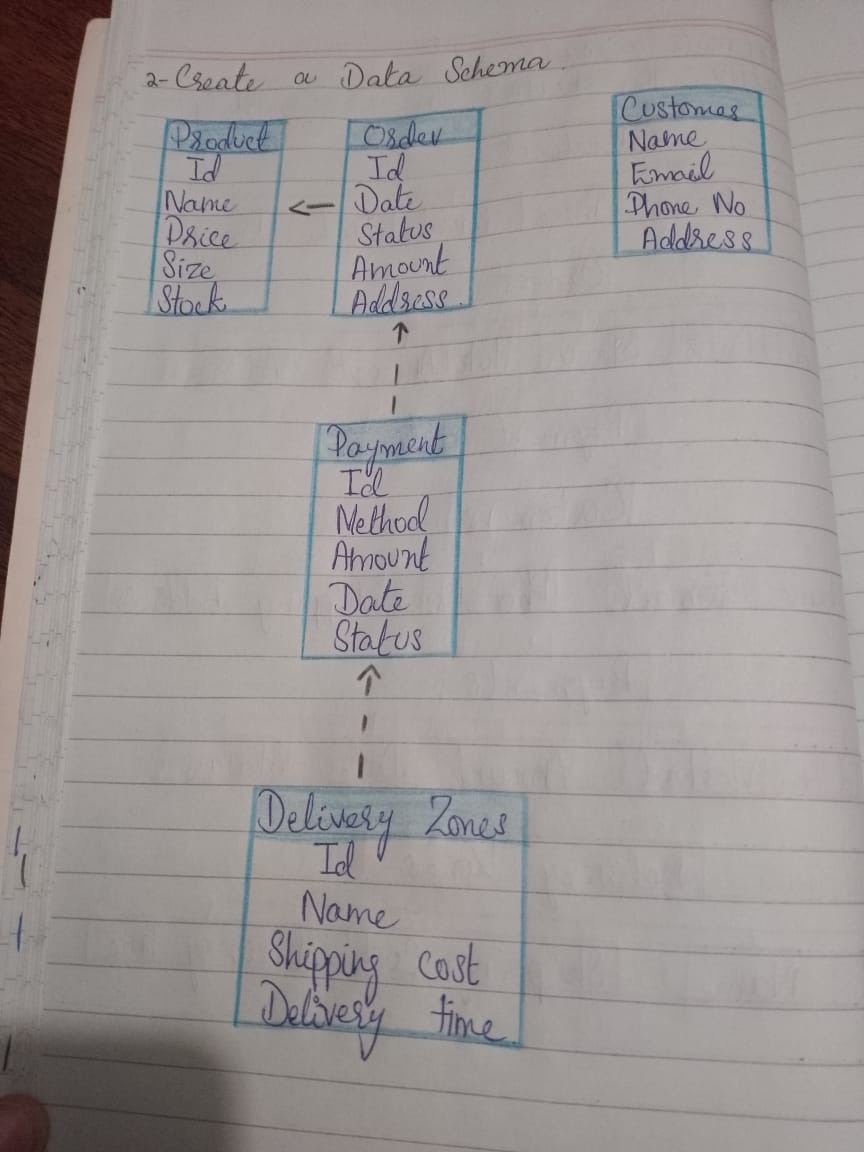 2- Create a Data Schema.
Product
Id
Name
Price
Size
Stock
Order
Id
Date
Status
Amount
Address.
Customer
Name
Email
Phone No
Address
Payment
Id
Method
Amount
Date
Status
Delivery Zones
Id
Name
Shipping cost
Delivery time.